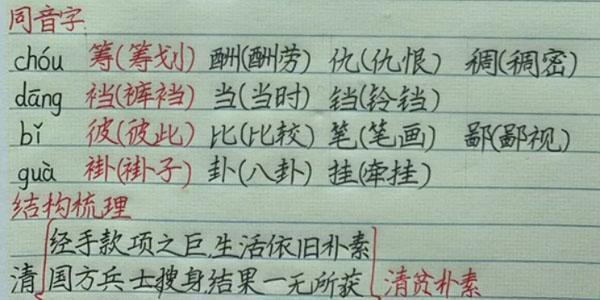 同音字
chóu 筹(筹划) 酬(酬劳) 仇(仇恨) 稠(稠密)
dāng 裆(裤裆) 当(当时) 铛(铃铛)
bǐ 彼(彼此) 比(比较) 笔(笔画) 鄙(鄙视)
guà 褂(褂子) 卦(八卦) 挂(牵挂)
结构梳理
经手款项之巨,生活依旧朴素
清 国方兵士搜身,结果一无所获 清贫朴素